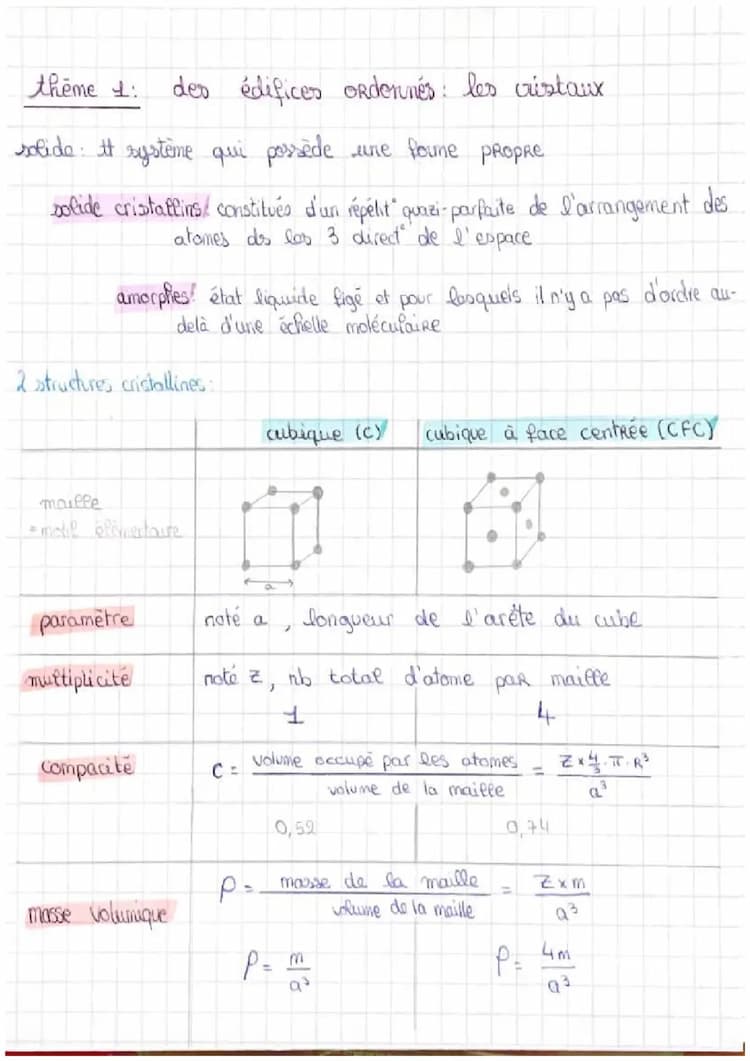 thème 1: des édifices ordennés: les cristaux
solide: # système qui possède une forme propre
solide cristallins: constitués d'un répétit° quazi-parfaite de l'arrangement des
atomes ds les 3 direct° de l'espace
amorphes: état liquide figé et pour lesquels il n'y a pas d'ordre au-
delà d'une échelle moléculaire
2 structures cristallines:
cubique (C) cubique à face centrée (CFC)
maille
= motif élémentaire
a
paramètre noté a, longueur de l'arête du cube
multiplicité noté Z, nb total d'atome par maille
1 4
compacité C = volume occupé par les atomes / volume de la maille = Z × 4/3 . π . R³ / a³
0,52 0,74
masse volumique ρ = masse de la maille / volume de la maille = Z × m / a³
ρ = m / a³ ρ = 4m / a³